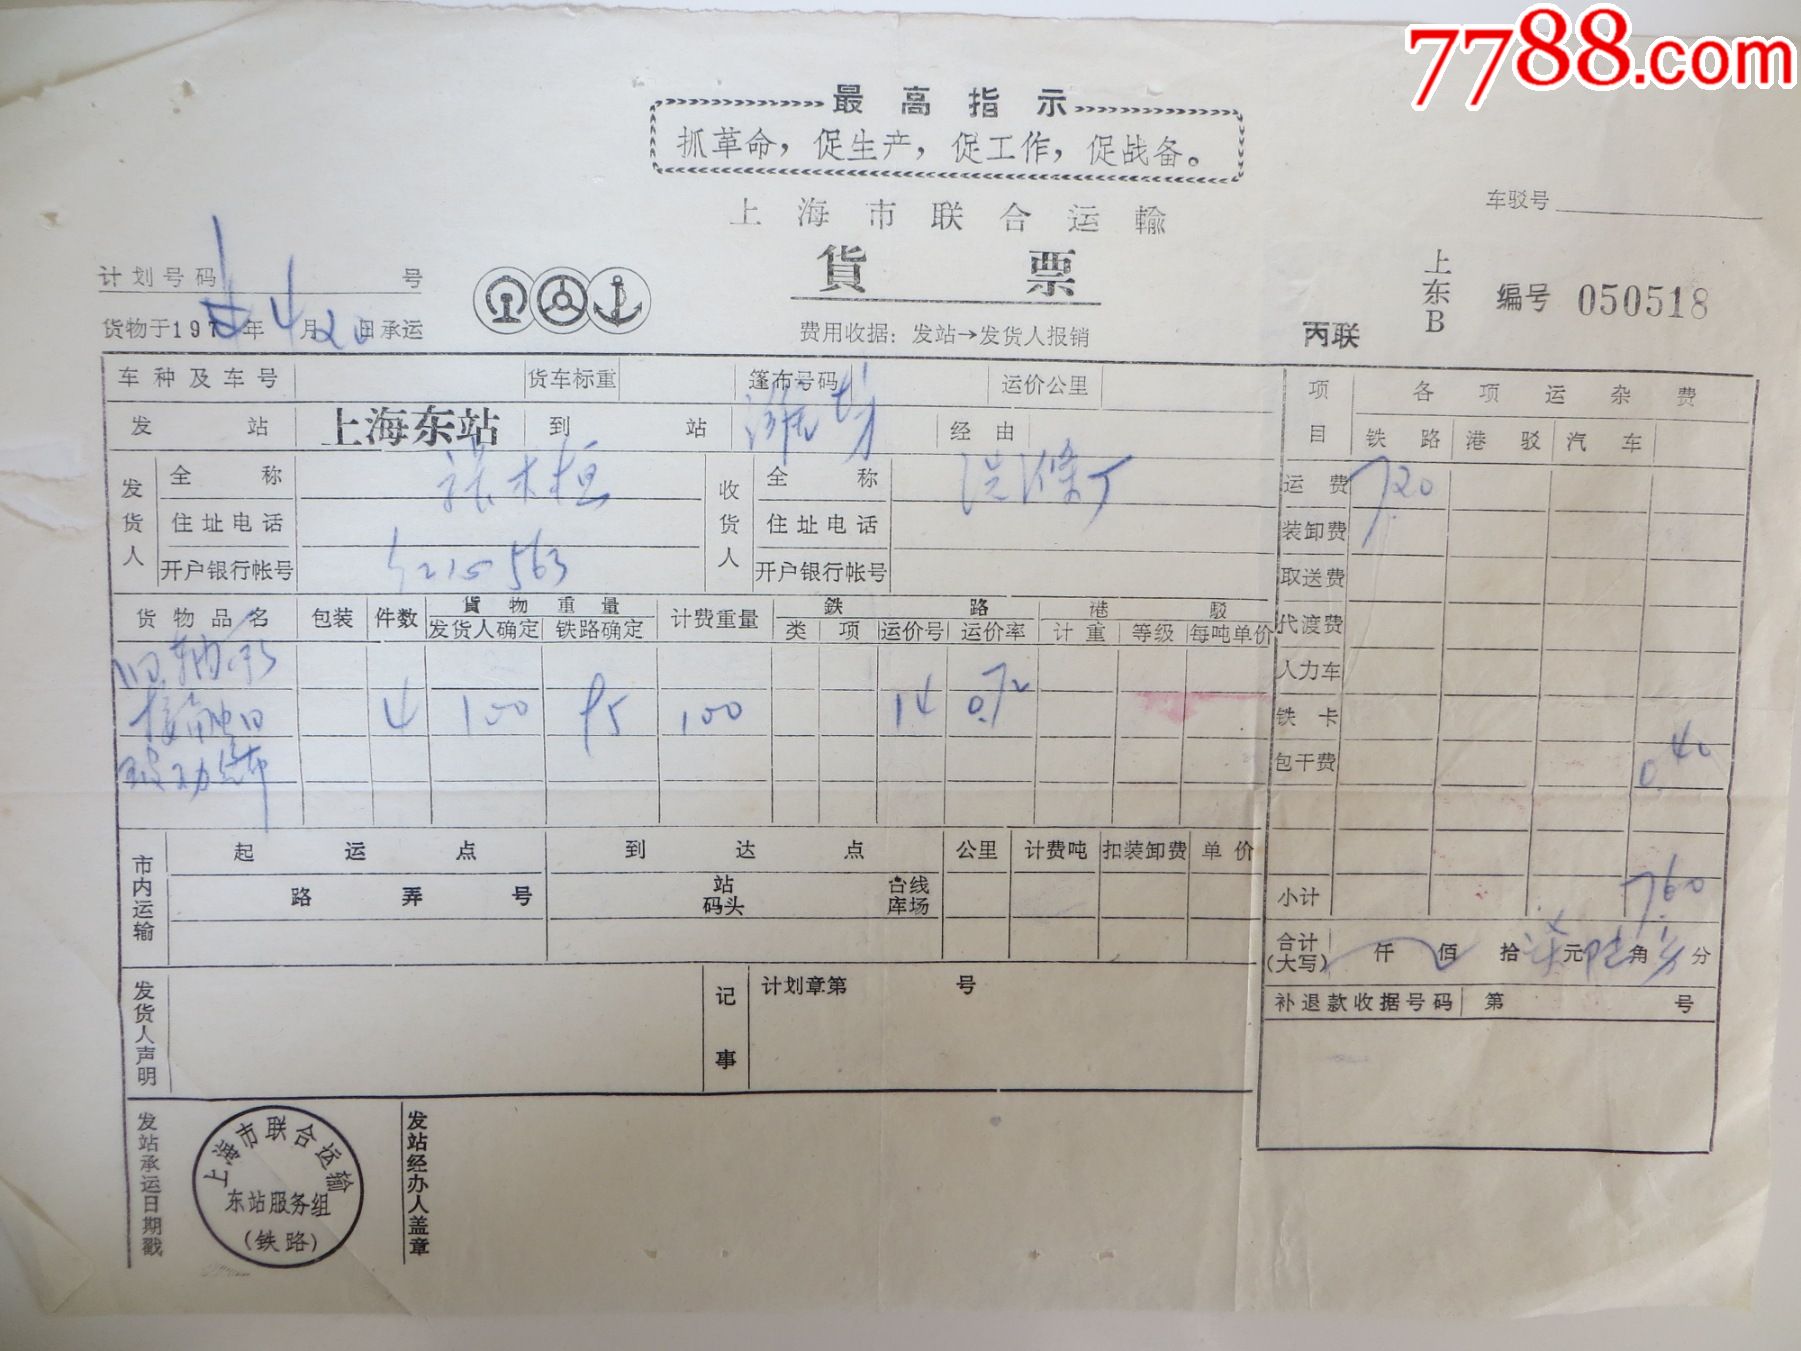 7788.com
最高指示
抓革命，促生产，促工作，促战备。
上海市联合运输
貨票
车驳号
计划号码 号
货物于197 年4月20日承运
费用收据：发站→发货人报销
丙联
上东B
编号 050518
车种及车号 货车标重 篷布号码 运价公里
发站 上海东站 到站 潍坊 经由
发货人 全称 收货人 全称
住址电话 住址电话
开户银行帐号 215563 开户银行帐号
货物品名 包装 件数 貨物重量 计费重量 鉄路 港駁
发货人确定 铁路确定 类 项 运价号 运价率 计重 等级 每吨单价
旧轴承
接触 4 100 95 100 14 0.72
项目 各项运杂费
铁路 港驳 汽车
运费 7.20
装卸费
取送费
代渡费
人力车
铁卡
包干费 0.40
小计 7.60
合计(大写) 仟 佰 拾 柒元陆角 分
补退款收据号码 第 号
市内运输 起运点 到达点 公里 计费吨 扣装卸费 单价
路 弄 号 站码头 台线库场
发货人声明
记事 计划章第 号
发站承运日期戳
上海市联合运输
东站服务组
(铁路)
发站经办人盖章